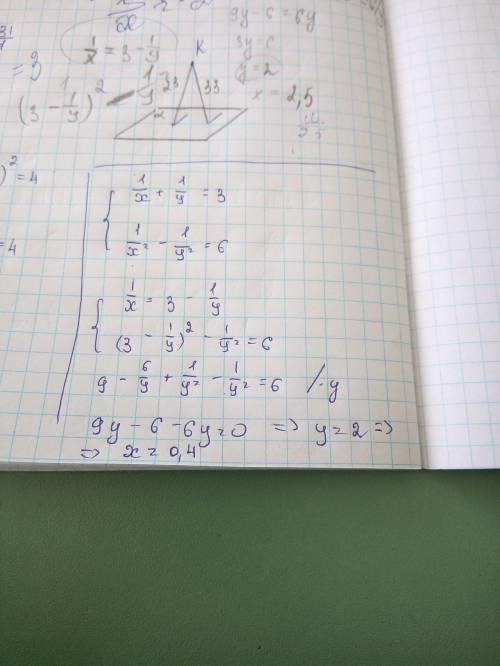 1/x = 3 - 1/y
9y - 6 = 6y
3y = 6
y = 2
x = 2,5
= 3
K
33
(3 - 1/y)^2 -
)^2 = 4
= 4
{ 1/x + 1/y = 3
1/x^2 - 1/y^2 = 6
{ 1/x = 3 - 1/y
(3 - 1/y)^2 - 1/y^2 = 6
9 - 6/y + 1/y^2 - 1/y^2 = 6 /·y
9y - 6 - 6y = 0 => y = 2 =>
=> x = 0,4